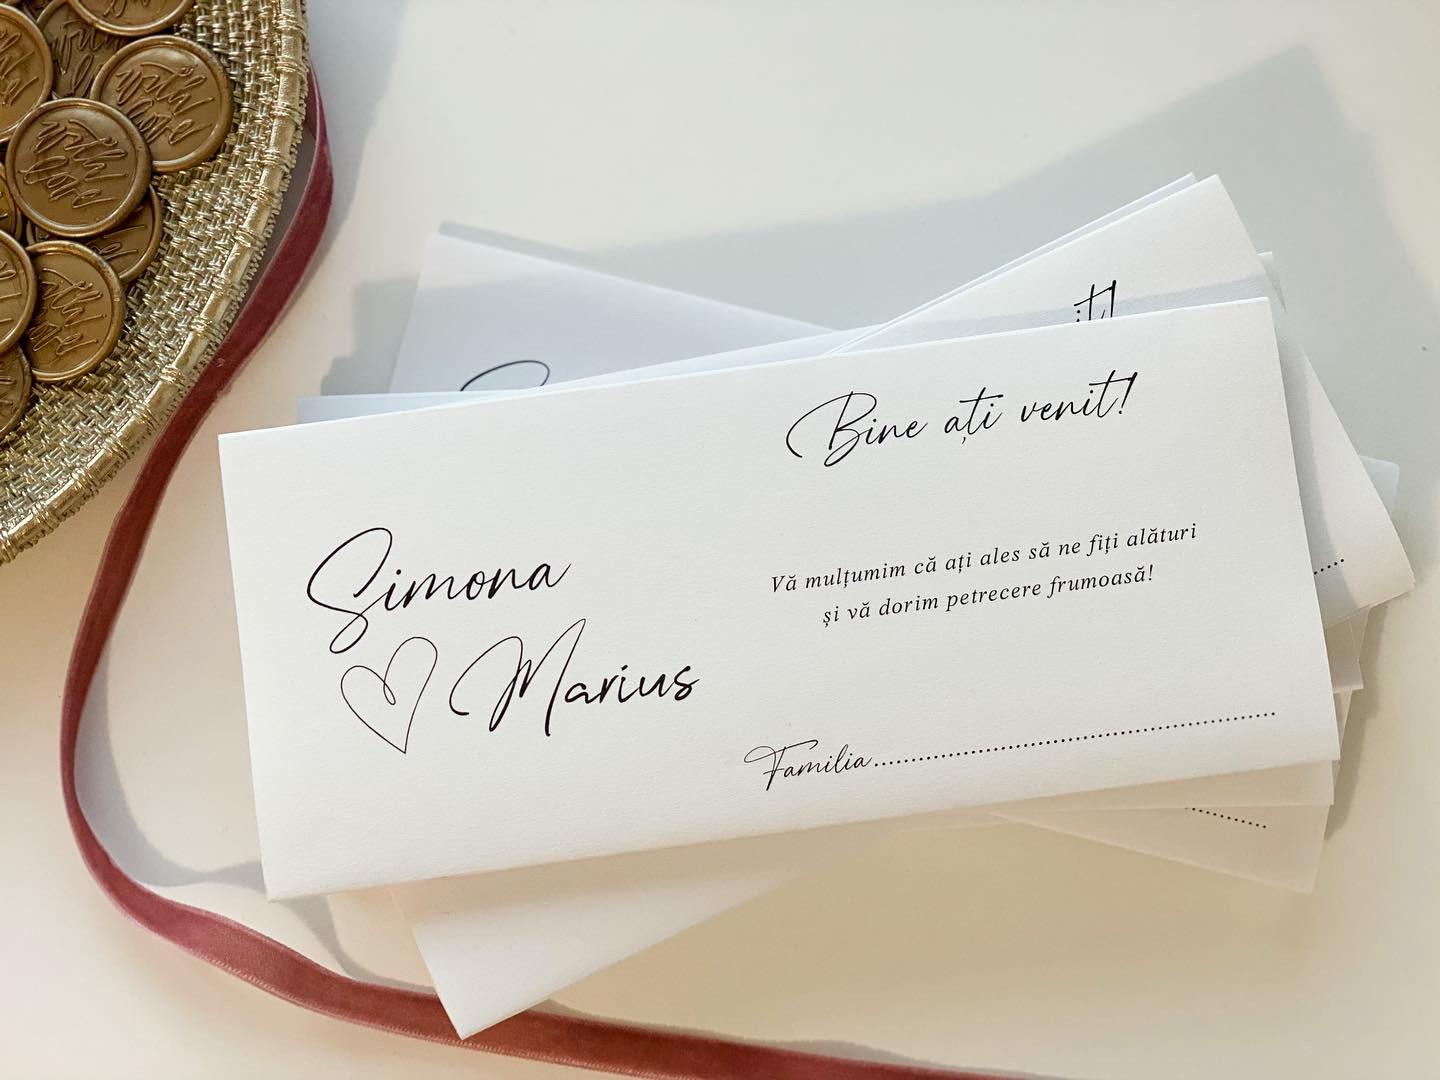 with
love
with
love
Simona
Marius
Bine ați venit!
Vă mulțumim că ați ales să ne fiți alături
și vă dorim petrecere frumoasă!
Familia..................................................